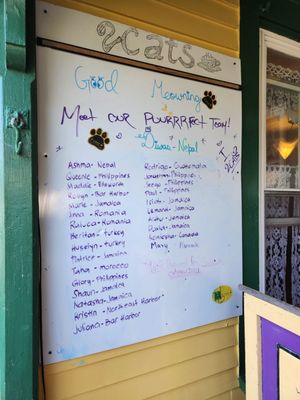 2 Cats
Good Meowning
Meet our Puurrrrect Team!
Diwas - Nepal
Ashma - Nepal
Queenie - Philippines
Maddie - Ellsworth
Rowyn - Bar Harbor
Marie - Jamaica
Irina - Romania
Raluca - Romania
Beritan - Turkey
Huseyin - Turkey
Patrice - Jamaica
Taha - Morocco
Glory - Philippines
Shaun - Jamaica
Natasha - Jamaica
Kristin - Northeast Harbor
Juliana - Bar Harbor
Rodrigo - Guatemala
Philippines
Philippines
Paul - Philippines
Jamaica
Jamaica
Jamaica
David - Jamaica
Canada
Mary